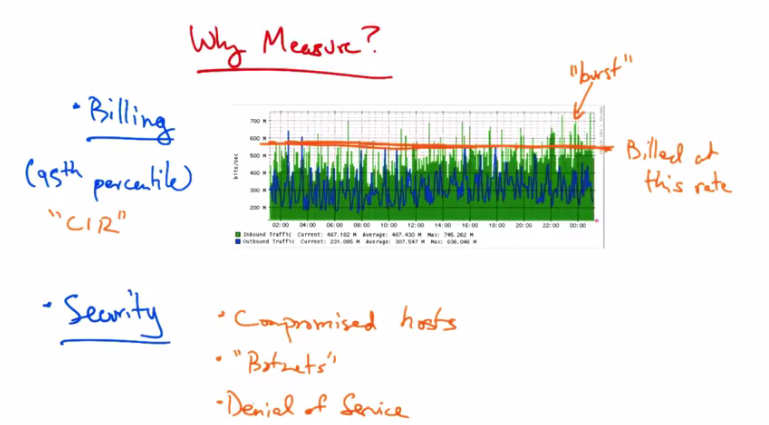 Why Measure?
"burst"
• Billing
(95th percentile)
"CIR"
Billed at
this rate
bits/sec
700 M
600 M
500 M
400 M
300 M
200 M
02:00 04:00 06:00 08:00 10:00 12:00 14:00 16:00 18:00 20:00 22:00 00:00
Inbound Traffic Current: 467.182 M Average: 467.430 M Max: 745.262 M
Outbound Traffic Current: 231.085 M Average: 307.547 M Max: 636.046 M
• Security
• Compromised hosts
• "Botnets"
• Denial of Service